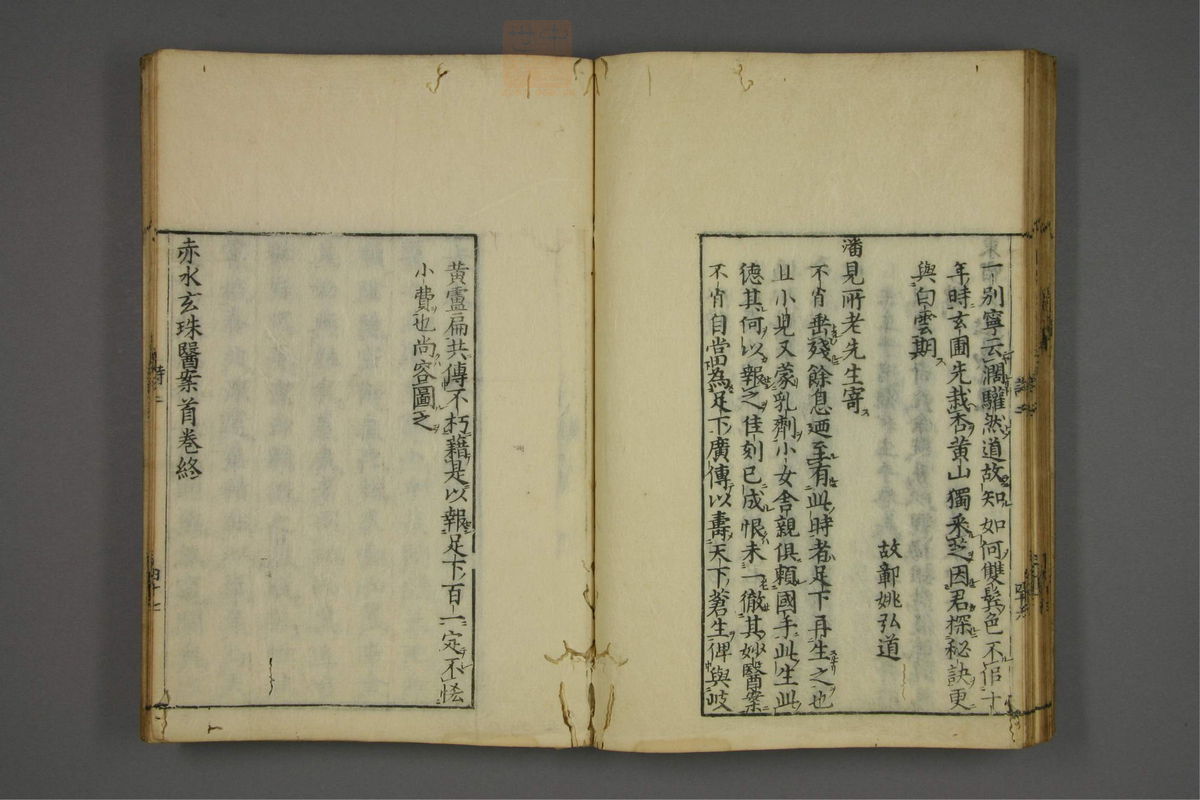 一別寧云濶驩然道故知如何雙髩色不佀十
年時玄圃先栽杏黄山獨采芝因君探秘訣更
與白雲期
故鄣姚弘道
潘見所老先生寄
不肖垂殘餘息廼至有此時者足下再生之也
且小兒又蒙乳劑小女舎親俱頼國手此生此
德其何以報之佳刻已成恨未一徹其妙醫案
不肖自當為足下廣傳以壽天下蒼生俾與岐
黄盧扁共傳不朽藉是以報足下百一定不恡
小費也尚容圖之
赤水玄珠醫案首巻終